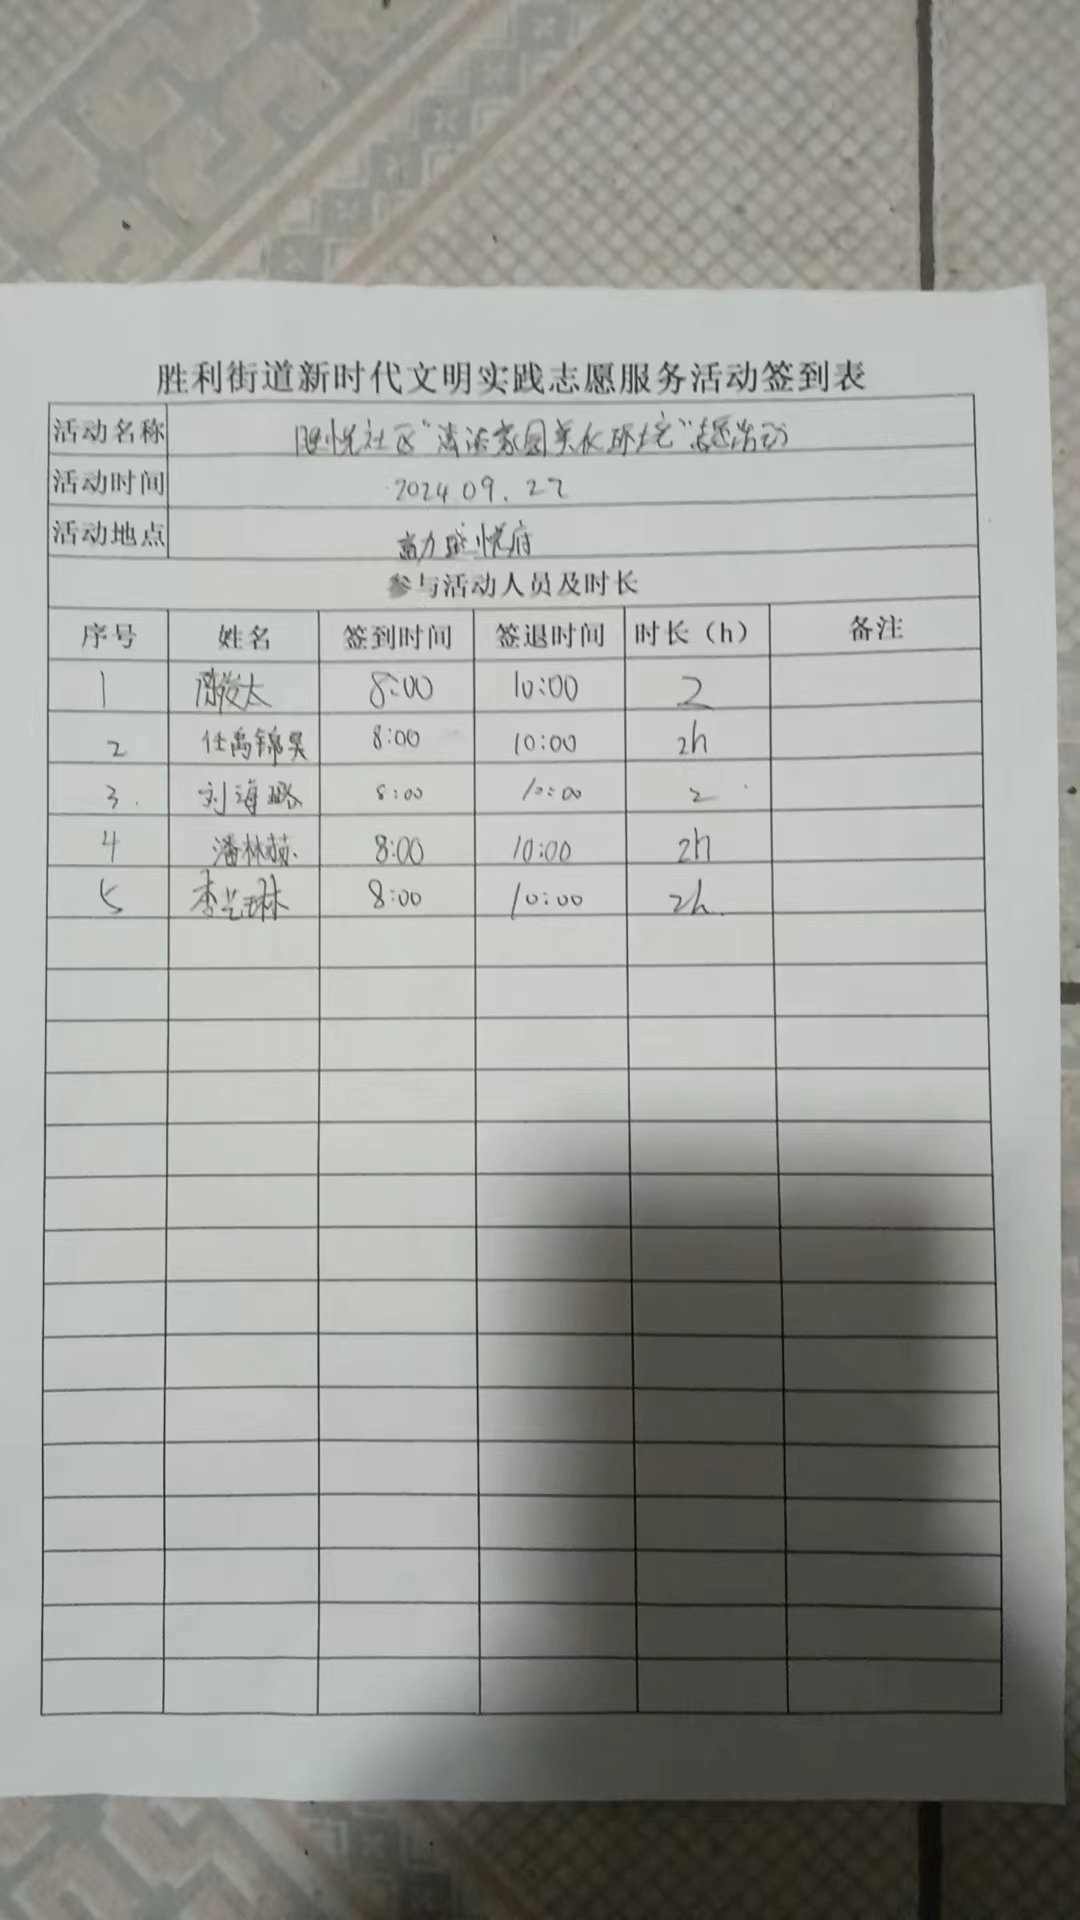 胜利街道新时代文明实践志愿服务活动签到表
活动名称 悦社区“清洁家园美化环境”志愿活动
活动时间 2024.09.27
活动地点 富力盛悦府
参与活动人员及时长
序号 姓名 签到时间 签退时间 时长（h） 备注
1 陈俊太 8:00 10:00 2
2 任禹锦昊 8:00 10:00 2h
3. 刘海璐 8:00 10:00 2
4 潘林 8:00 10:00 2h
5 李兰琳 8:00 10:00 2h.